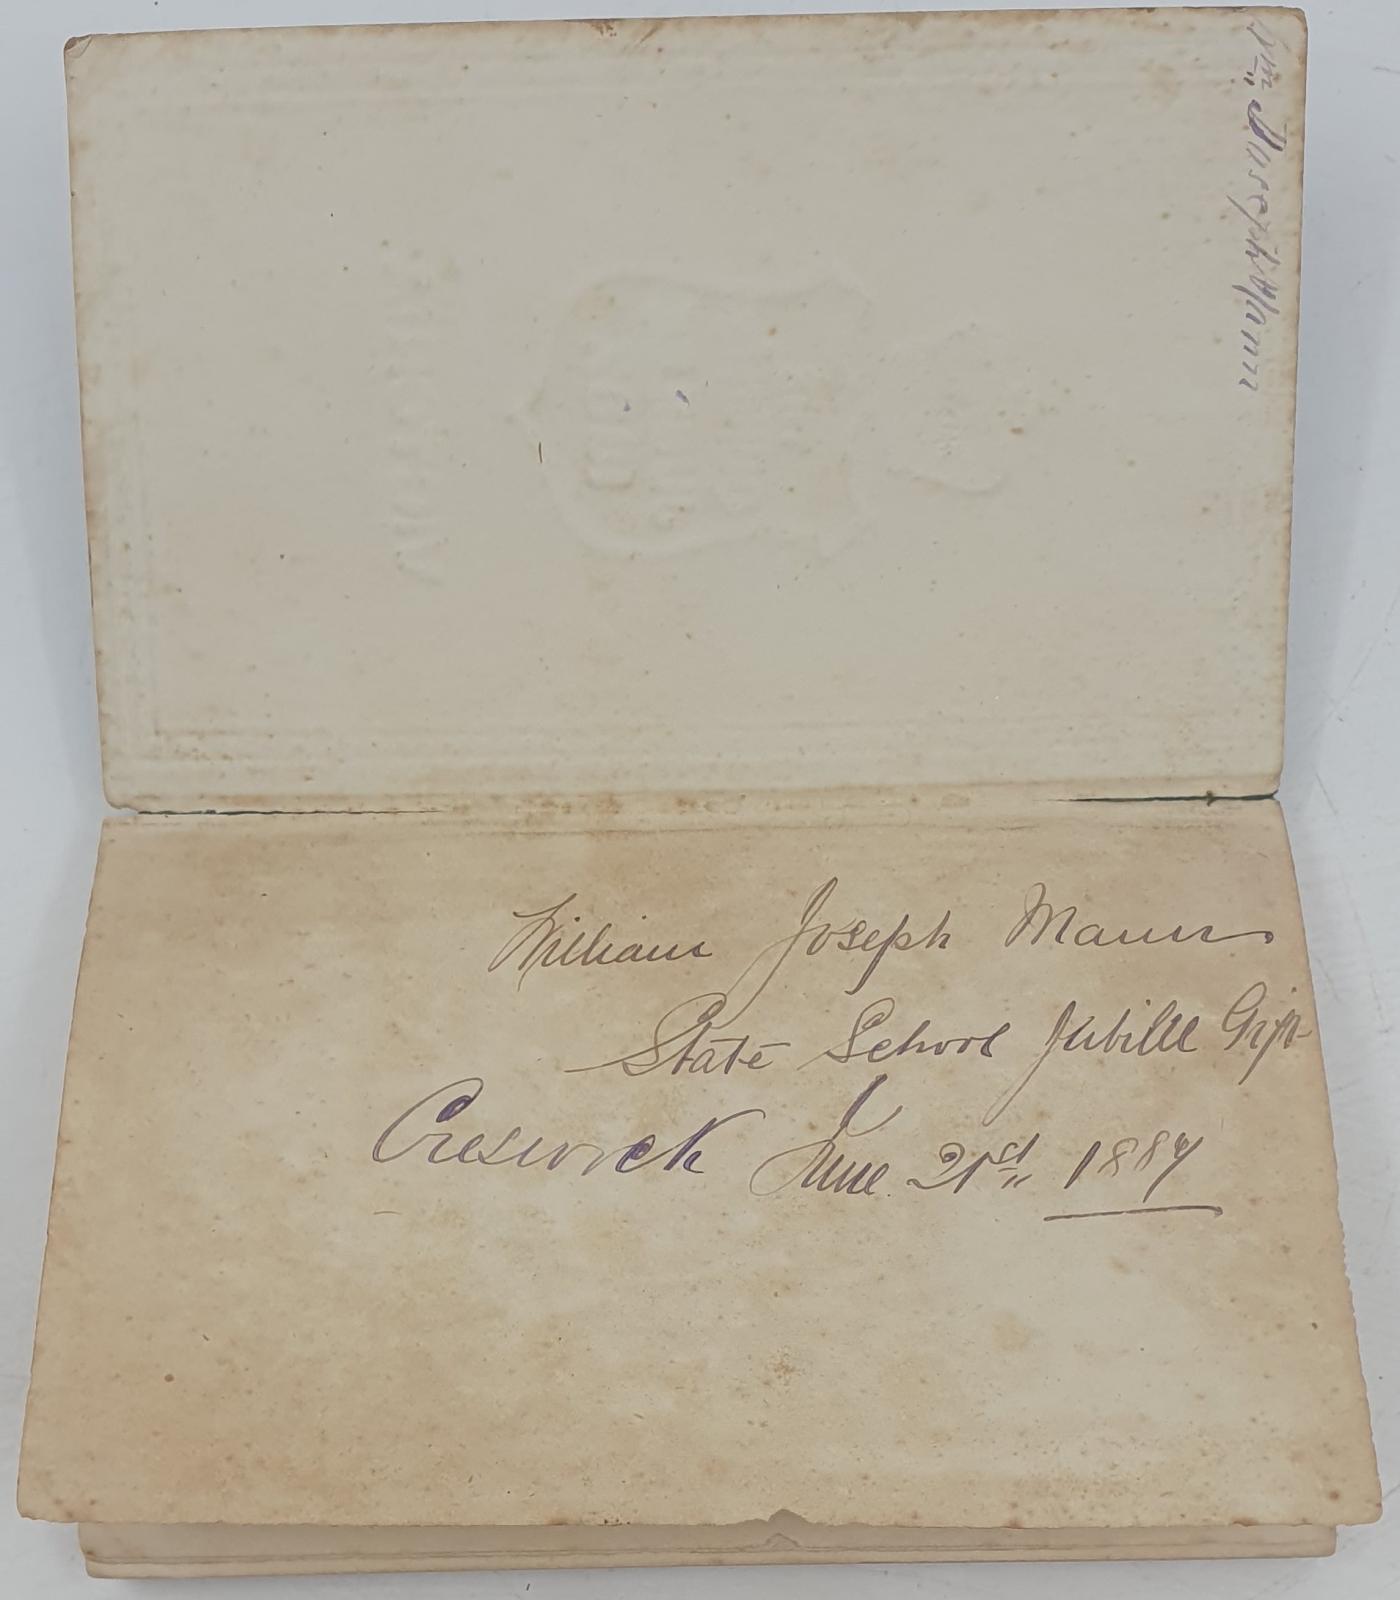 Wm Joseph Mann
William Joseph Mann
State School Jubilee Gift
Creswick June 21st 1887